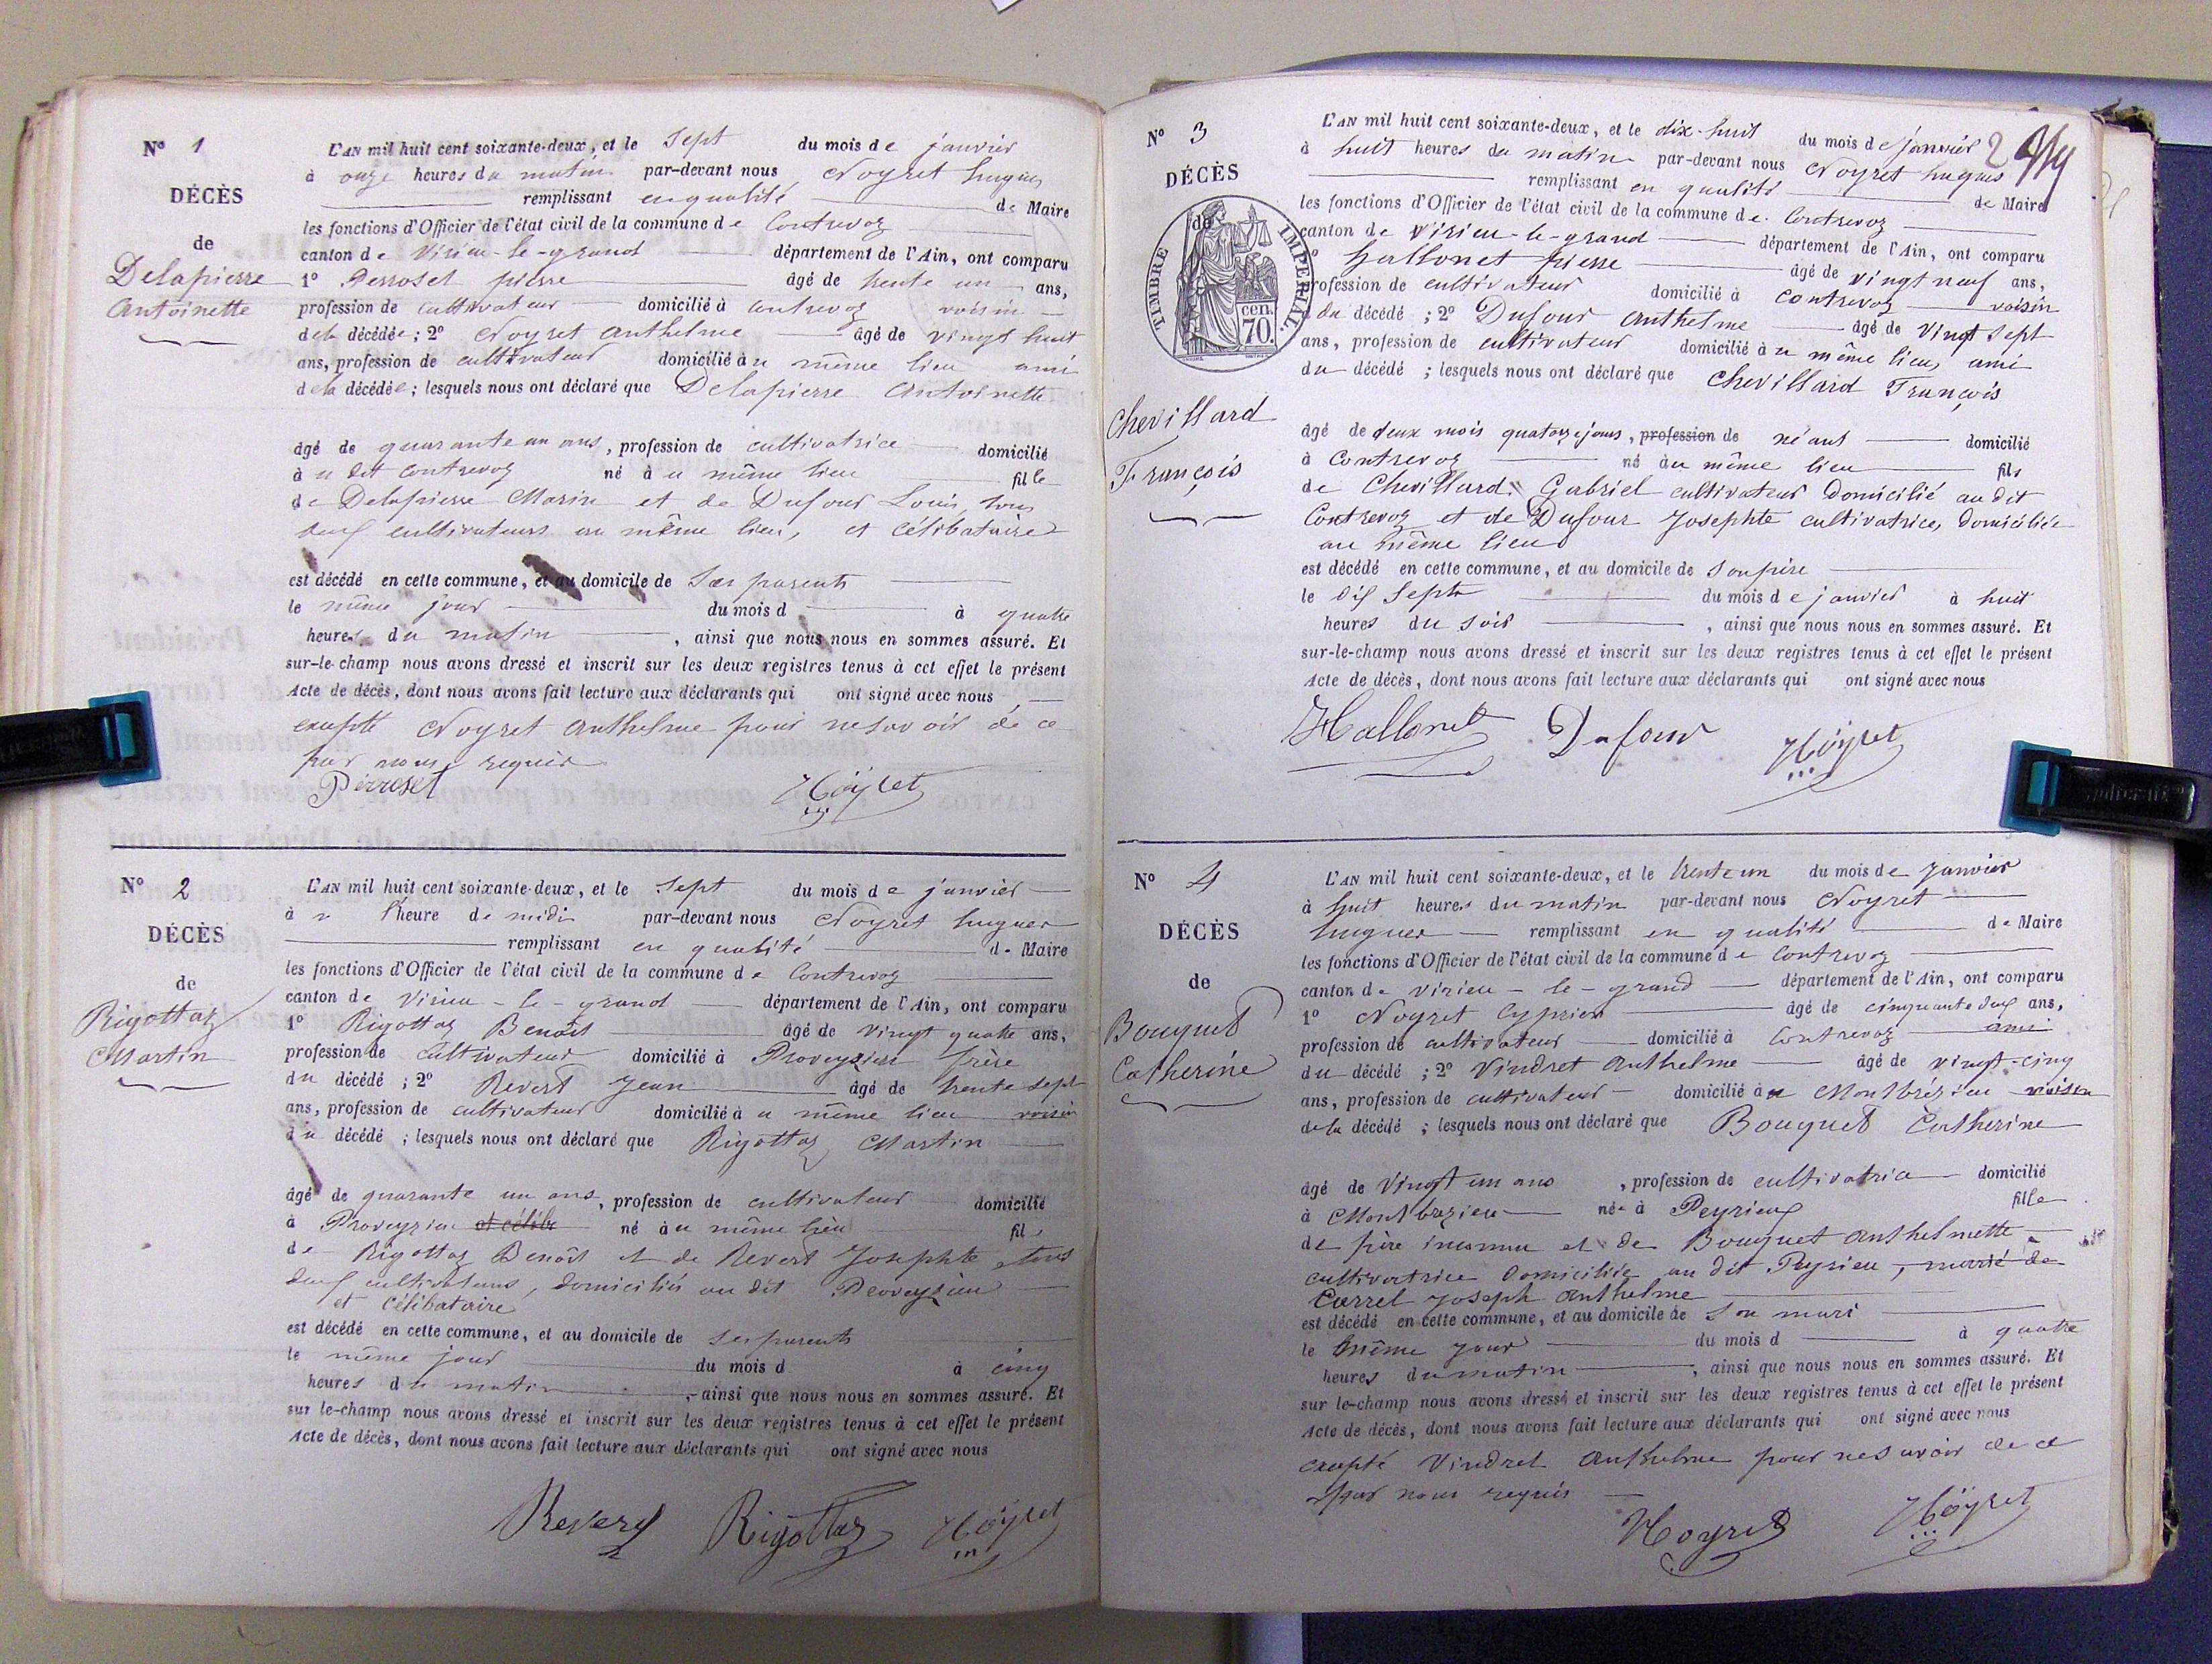 N° 1
DÉCÈS
de
Delapierre
Antoinette
L'AN mil huit cent soixante-deux, et le Sept du mois de janvier
à onze heures du matin par-devant nous Noyret hugues
remplissant en qualité de Maire
les fonctions d'Officier de l'état civil de la commune de Contrevoz
canton de Virieu-le-grand département de l'Ain, ont comparu
1° Perroset pierre âgé de trente un ans,
profession de cultivateur domicilié à contrevoz voisin
de la décédée ; 2° Noyret anthelme âgé de vingt huit
ans, profession de cultivateur domicilié au même lieu ami
de la décédée ; lesquels nous ont déclaré que Delapierre Antoinette
âgé de quarante un ans, profession de cultivatrice domicilié
à u dit contrevoz né à u même lieu fille
de Delapierre Marin et de Dufour Louis, tous
deux cultivateurs au même lieu, et célibataire
est décédé en cette commune, et au domicile de Ses parents
le même jour du mois d à quatre
heures du matin, ainsi que nous nous en sommes assuré. Et
sur-le-champ nous avons dressé et inscrit sur les deux registres tenus à cet effet le présent
Acte de décès, dont nous avons fait lecture aux déclarants qui ont signé avec nous
excepté Noyret anthelme pour ne savoir de ce
par nous requis
Perroset Nöyret
N° 2
DÉCÈS
de
Rigottaz
Martin
L'AN mil huit cent soixante-deux, et le Sept du mois de janvier
à l'heure de midi par-devant nous Noyret hugues
remplissant en qualité de Maire
les fonctions d'Officier de l'état civil de la commune de Contrevoz
canton de Virieu-le-grand département de l'Ain, ont comparu
1° Rigottaz Benoît âgé de vingt quatre ans,
profession de cultivateur domicilié à Proveysieu frère
du décédé ; 2° Revert Jean âgé de trente sept
ans, profession de cultivateur domicilié à u même lieu voisin
du décédé ; lesquels nous ont déclaré que Rigottaz Martin
âgé de quarante un ans, profession de cultivateur domicilié
à Proveysieu et céliba né à u même lieu fils
de Rigottaz Benoît et de Revert Josephte, tous
deux cultivateurs, domiciliés au dit Proveysieu
et célibataire
est décédé en cette commune, et au domicile de Ses parents
le même jour du mois d à cinq
heures du matin, ainsi que nous nous en sommes assuré. Et
sur le-champ nous avons dressé et inscrit sur les deux registres tenus à cet effet le présent
Acte de décès, dont nous avons fait lecture aux déclarants qui ont signé avec nous
Rigottaz Nöyret
N° 3
DÉCÈS
de
TIMBRE IMPÉRIAL.
70. cen.
Chevillard
François
L'AN mil huit cent soixante-deux, et le dix-huit du mois de janvier 2
à huit heures du matin par-devant nous Noyret hugues
remplissant en qualité de Maire
les fonctions d'Officier de l'état civil de la commune de Contrevoz
canton de Virieu-le-grand département de l'Ain, ont comparu
1° hallonet pierre âgé de vingt neuf ans,
profession de cultivateur domicilié à contrevoz voisin
du décédé ; 2° Dufour Anthelme âgé de vingt sept
ans, profession de cultivateur domicilié à u même lieu, ami
du décédé ; lesquels nous ont déclaré que Chevillard François
âgé de deux mois quatorze jours, profession de néant domicilié
à Contrevoz né à u même lieu fils
de Chevillard Gabriel cultivateur domicilié au dit
Contrevoz et de Dufour Josephte cultivatrice, domiciliée
au même lieu
est décédé en cette commune, et au domicile de Son père
le dix Sept du mois de janvier à huit
heures du soir, ainsi que nous nous en sommes assuré. Et
sur-le-champ nous avons dressé et inscrit sur les deux registres tenus à cet effet le présent
Acte de décès, dont nous avons fait lecture aux déclarants qui ont signé avec nous
Hallonet Dufour Nöyret
N° 4
DÉCÈS
de
Bouquet
Catherine
L'AN mil huit cent soixante-deux, et le trente un du mois de Janvier
à huit heures du matin par-devant nous Noyret
hugues remplissant en qualité de Maire
les fonctions d'Officier de l'état civil de la commune de Contrevoz
canton de Virieu-le-grand département de l'Ain, ont comparu
1° Noyret Cyprien âgé de cinquante deux ans,
profession de cultivateur domicilié à Contrevoz ami
du décédé ; 2° Vindret Anthelme âgé de vingt-cinq
ans, profession de cultivateur domicilié à Montbrézieu voisin
de la décédé ; lesquels nous ont déclaré que Bouquet Catherine
âgé de vingt un ans, profession de cultivatrice domicilié
à Montbrézieu née à Peyrieux fille
de père inconnu et de Bouquet Anthelmette
cultivatrice domiciliée au dit Peyrieu, marié de
Carrel Joseph Anthelme
est décédé en cette commune, et au domicile de Son mari
le même jour du mois d à quatre
heures du matin, ainsi que nous nous en sommes assuré. Et
sur le-champ nous avons dressé et inscrit sur les deux registres tenus à cet effet le présent
Acte de décès, dont nous avons fait lecture aux déclarants qui ont signé avec nous
excepté Vindret Anthelme pour ne savoir de ce
par nous requis
Noyret Nöyret